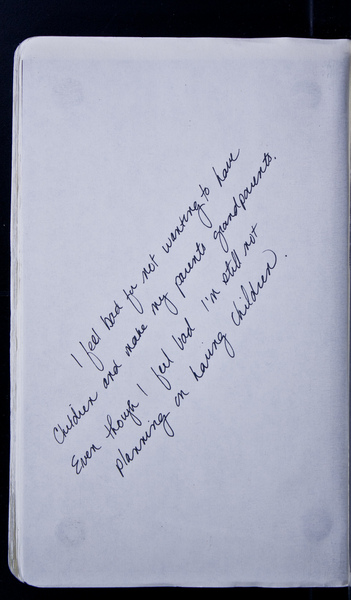 I feel bad for not wanting to have
Children and make my parents grandparents.
Even though I feel bad I'm still not
planning on having children.